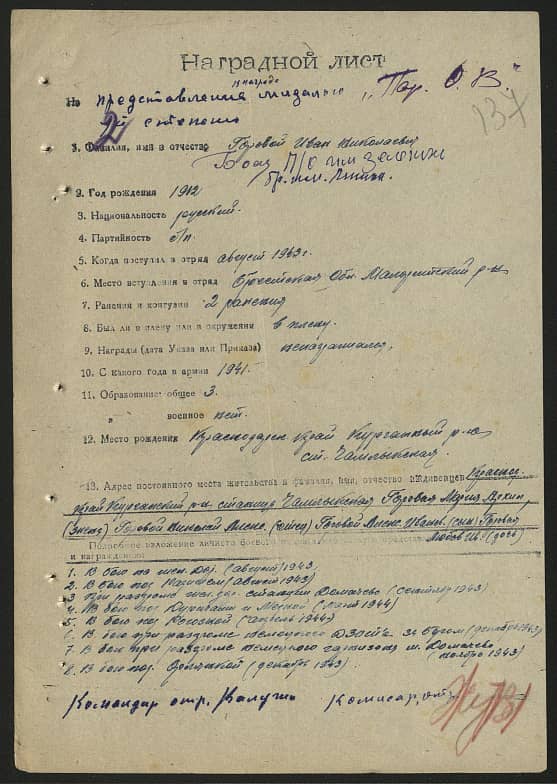 Наградной лист
к награде
На представления медалью „Пар. О. В."
2й степени
137
1. Фамилия, имя и отчество Горовой Иван Николаевич
Боец П/о им
бр. им. Ленина.
2. Год рождения 1912
3. Национальность русский.
4. Партийность б/п.
5. Когда поступил в отряд август 1943 г.
6. Место вступления в отряд Брестская Обл. Малоритский р-н
7. Ранения и контузии 2 ранения
8. Был ли в плену или в окружении в плену.
9. Награды (дата Указа или Приказа)
10. С какого года в армии 1941.
11. Образование: общее 3.
военное нет.
12. Место рождения Краснодарск край Курганный р-н
ст. Чамлыкская.
13. Адрес постоянного места жительства и фамилия, имя, отчество иждивенцев Краснод.
край Курганский р-н станица Чамлыкская Горовая Мария
(жена) Горовой Николай Алекс. (отец) Горовой Алекс. Иван. (сын) Горовая
Любовь Ив. (дочь)
Подробное изложение личного боевого
и награждению
1. В бою на жел. дор. (август) 1943.
2. В бою под (август 1943)
3. При разгроме жел. дор. станции Домачево (сентябр 1943)
4. В бою под и (март 1944)
5. В бою под (апрель 1944)
6. В бою при разгроме немецкого за Бугом (декабря 1943)
7. В бою при разгроме немецкого гарнизона м. Домачево
ноябрь 1943)
8. В бою под (декабрь 1943).
Командир отр. Комисар, отр.